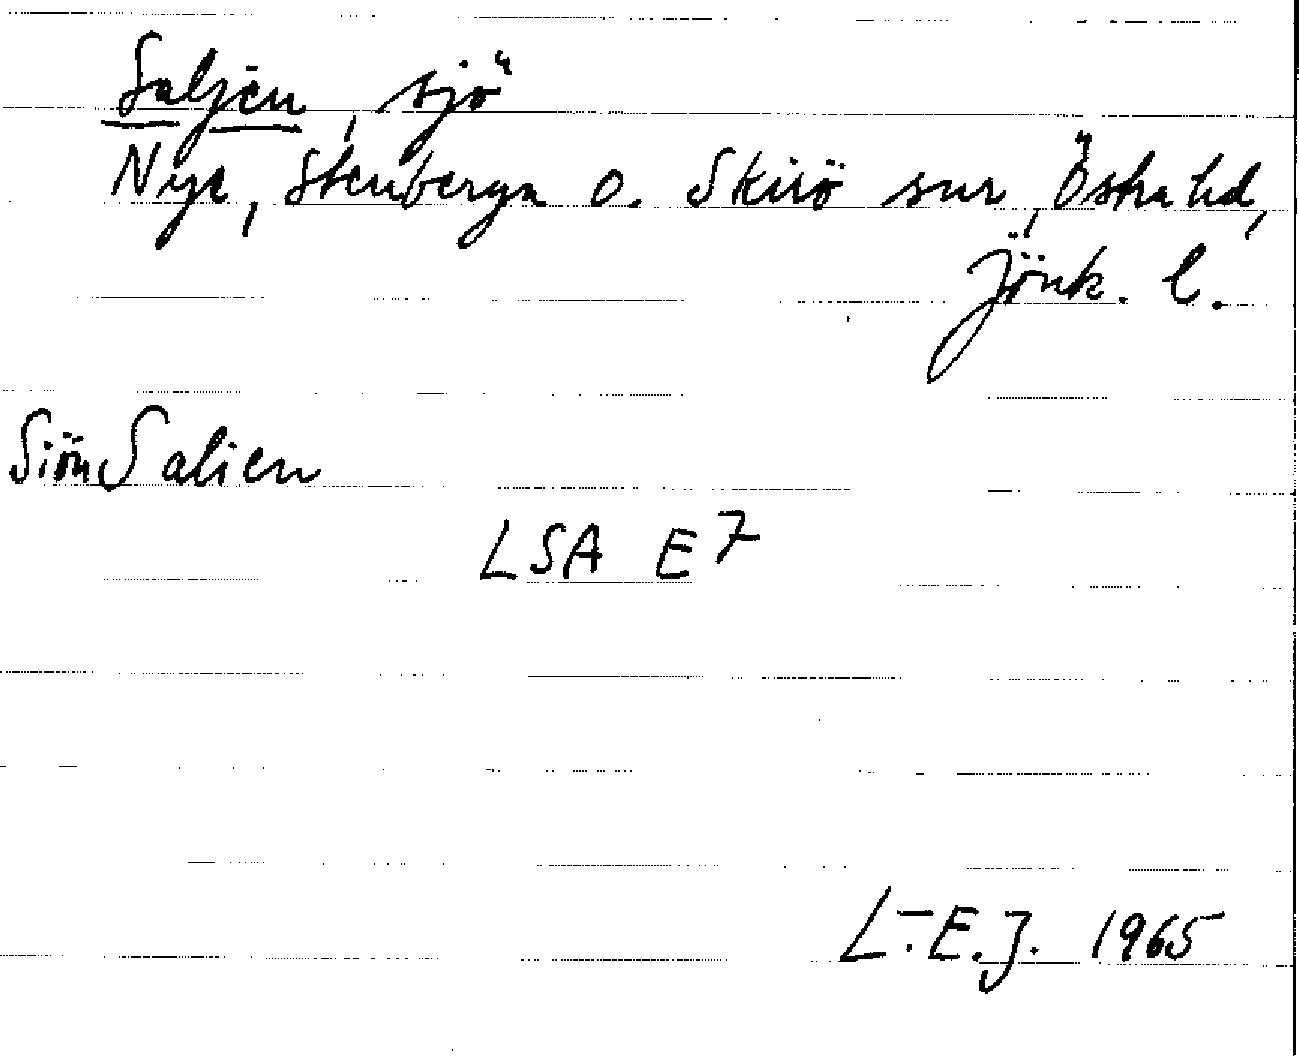 Saljen, sjö
Nye, Stenberga o. Skirö snr, Östra hd,
Jönk. l.
Siön Salien
LSA E7
L.-E.J. 1965